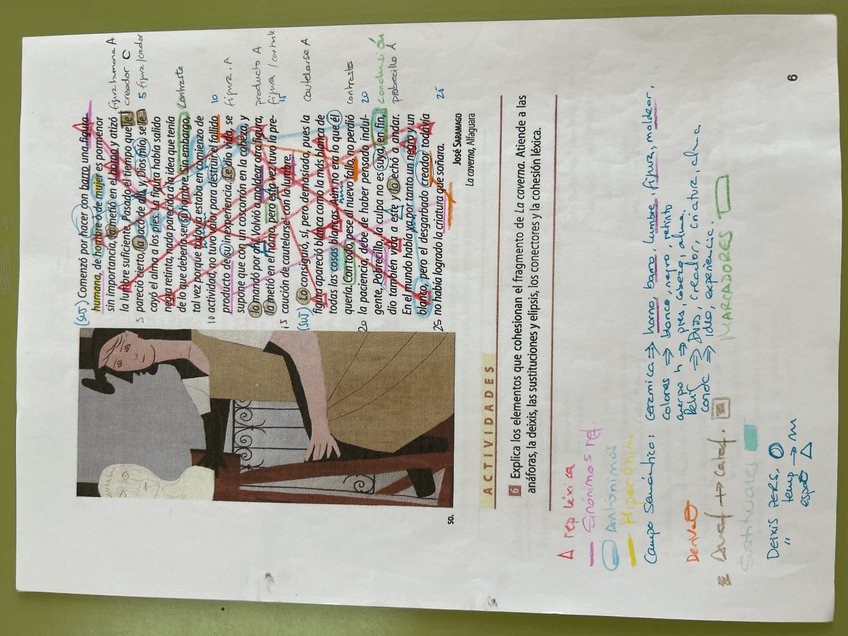 (SUJ) Comenzó por hacer con barro una figura
humana, de hombre o de mujer es pormenor
sin importancia, la metió en el horno y atizó
la lumbre suficiente. Pasado el tiempo que le
5 pareció cierto, la sacó de allí, y, Dios mío, se le
cayó el alma a los pies. La figura había salido
negra retinta, nada parecida a la idea que tenía
de lo que debía ser su hombre. Sin embargo,
tal vez porque todavía estaba en comienzo de
10 actividad, no tuvo valor para destruir el fallido
producto de su inexperiencia. Le dio vida, se
supone que con un coscorrón en la cabeza, y
lo mandó por ahí. Volvió a moldear otra figura,
la metió en el horno, pero esta vez tuvo la pre-
15 caución de cautelarse con la lumbre.
(SUJ) Lo consiguió, sí, pero demasiado, pues la
figura apareció blanca como la más blanca de
todas las cosas blancas. Aún no era lo que él
quería. Con todo, pese al nuevo fallo, no perdió
20 la paciencia, debe de haber pensado, indul-
gente, Pobrecillo, la culpa no es suya, en fin,
dio también vida a este y lo echó a andar.
En el mundo había ya por tanto un negro y un
blanco, pero el desgarbado creador todavía
25 no había logrado la criatura que soñara.
JOSÉ SARAMAGO
La caverna, Alfaguara
figura humana A
creador C
5 figura/creador
contraste
10
figura. A
producto A
figura / contraste
15
cautelarse A
contraste
20
conclusión
pobrecillo A
25
SO.
ACTIVIDADES
6 Explica los elementos que cohesionan el fragmento de La caverna. Atiende a las
anáforas, la deixis, las sustituciones y elipsis, los conectores y la cohesión léxica.
rep léxica
Sinónimos ref.
Antónimos
Hiperónim
Campo semántico: ceramica → horno, barro, lumbre, figura, moldear,
colores → blanco, negro, retinto
cuerpo h → pies, cabeza, alma.
Relig → Dios, creador, criatura, alma
conoc → idea, experiencia.
Deriva
Anaf ↔ Cataf.
MARCADORES
Sustituciones
Deixis PERS.
" temp → m
espa
6